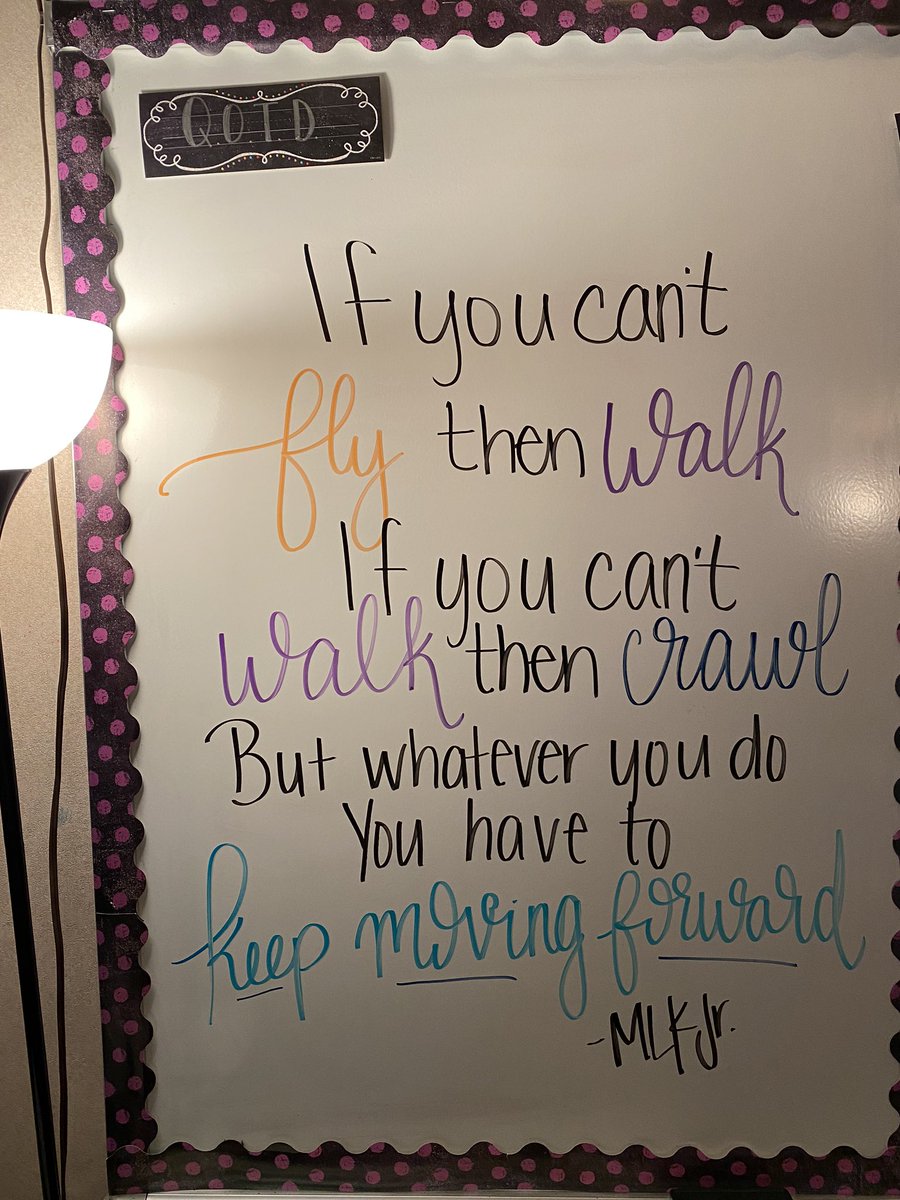 Q.O.T.D
If you can't
fly then Walk
If you can't
walk then crawl
But whatever you do
You have to
keep moving forward
-MLK Jr.